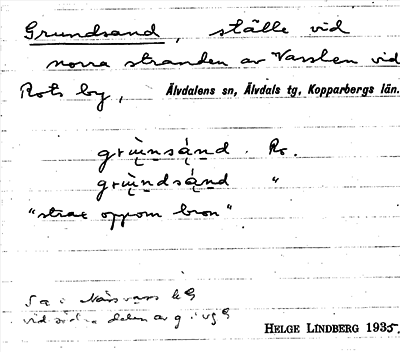 Grundsand, ställe vid
norra stranden av Vasslan vid
Rots by, Älvdalens sn, Älvdals tg, Kopparbergs län.
grùnsánd. Ro.
grùndsánd "
"strax oppom bron"
Sa i
vid södra delen av g i
HELGE LINDBERG 1935.